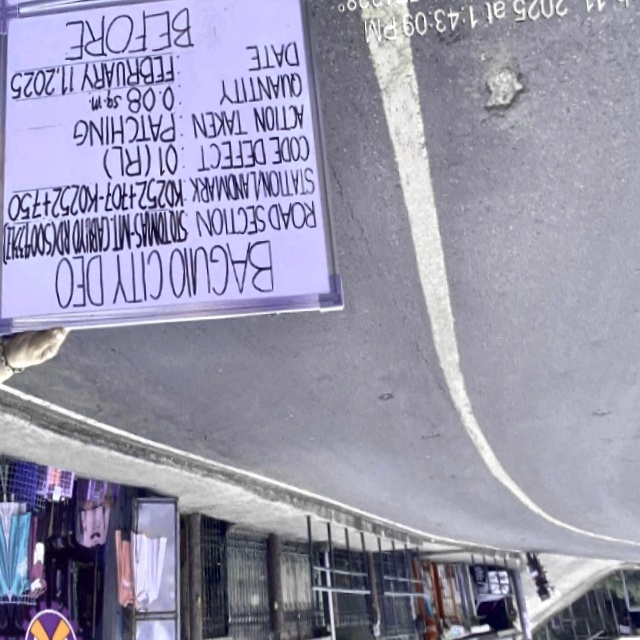 BAGUIO CITY DEO
ROAD SECTION
STATION/LANDMARK K0252+707-K0252+750
CODE DEFECT : 01 (RL)
ACTION TAKEN : PATCHING
QUANTITY : 0.08 sq.m
DATE : FEBRUARY 11, 2025
BEFORE
11, 2025 at 1:43:09 PM